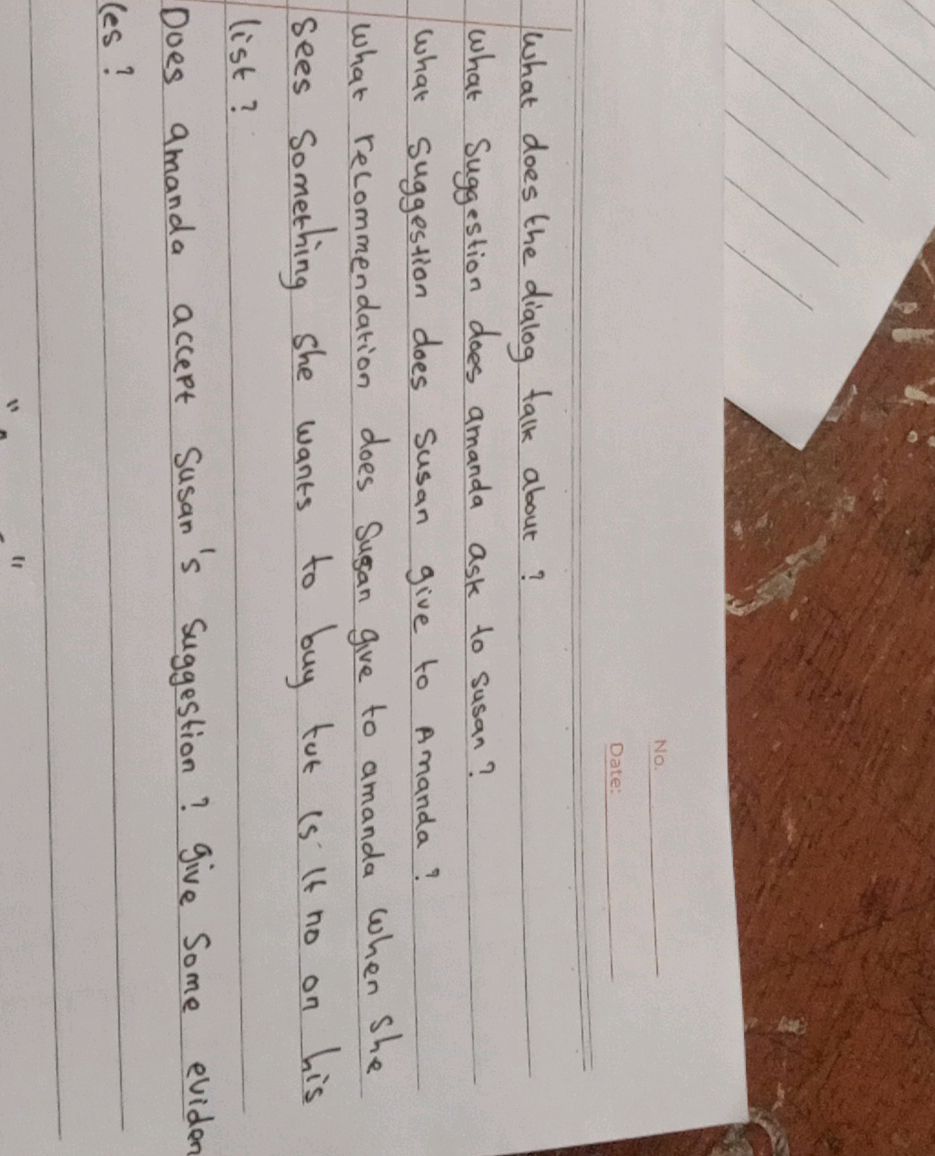 No.
Date:
What does the dialog talk about ?
What Suggestion does amanda ask to susan ?
What suggestion does susan give to Amanda ?
What recommendation does Susan give to amanda when she
Sees something she wants to buy tut is it no on his
list ?
Does amanda accept susan's suggestion ? give some eviden
ces ?